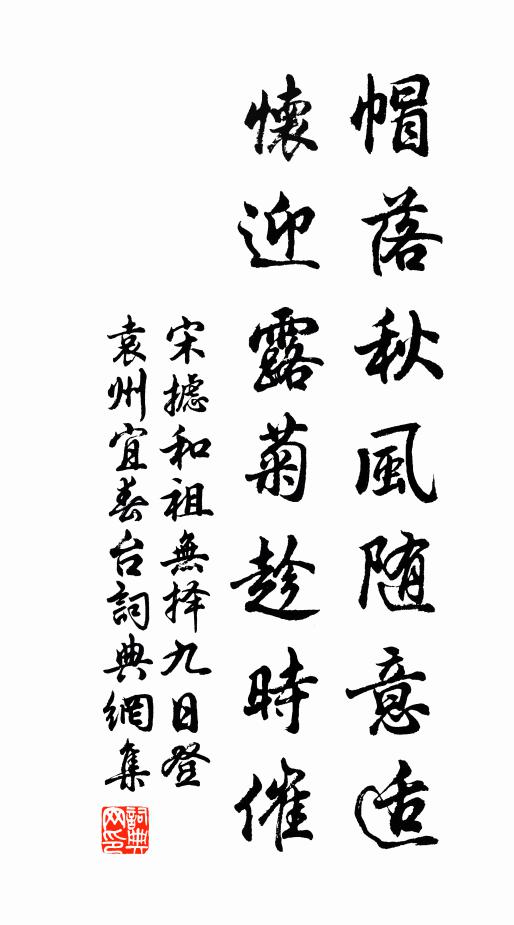 帽落秋風随意适
懷迎露菊趁時催
宋摅和祖無择九日登
袁州宜春台詞典網集
詞典网印